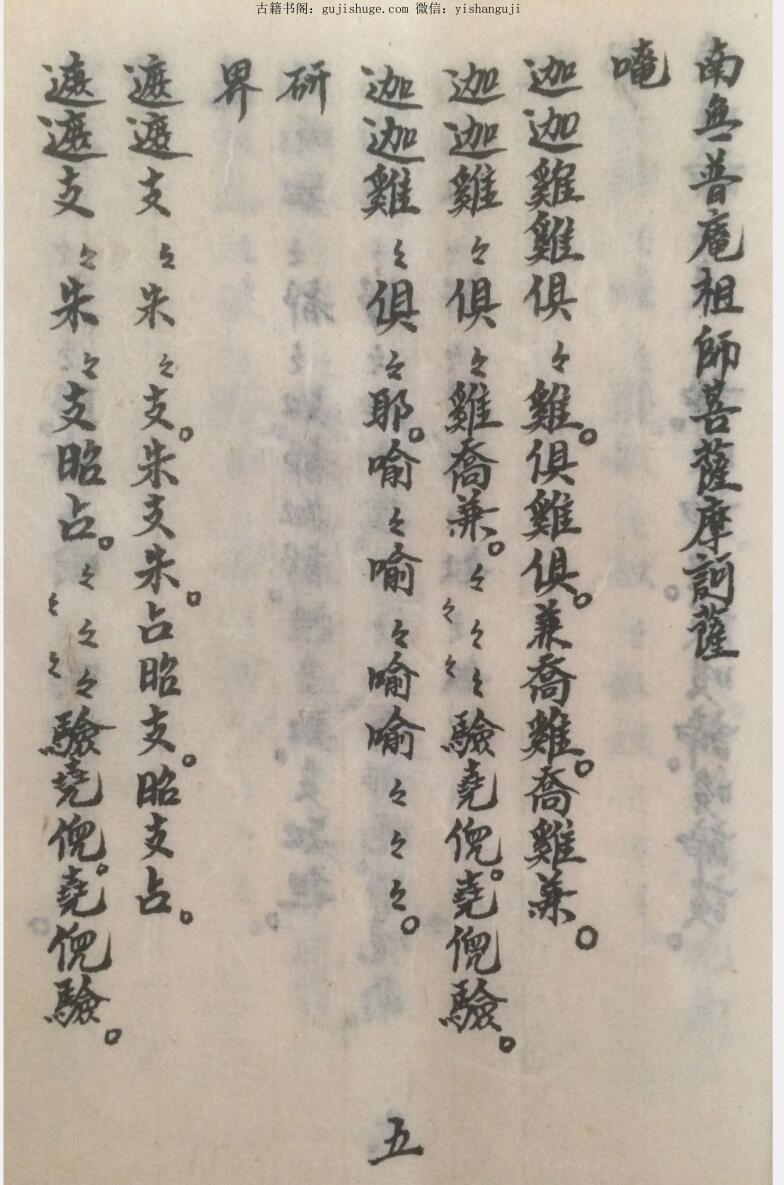 古籍书阁：gujishuge.com 微信：yishanguji
南無普庵祖師菩薩摩訶薩
唵
迦迦雞雞俱々雞。俱雞俱。兼喬雞。喬雞兼。
迦迦雞々俱々雞喬兼。々々々々々驗堯倪。堯倪驗。
迦迦雞々俱々耶。喻々喻々喻喻々々々。
研
界
遮遮支々朱々支。朱支朱。占昭支。昭支占。
遮遮支々朱々支昭占。々々々々々驗堯倪。堯倪驗。
五